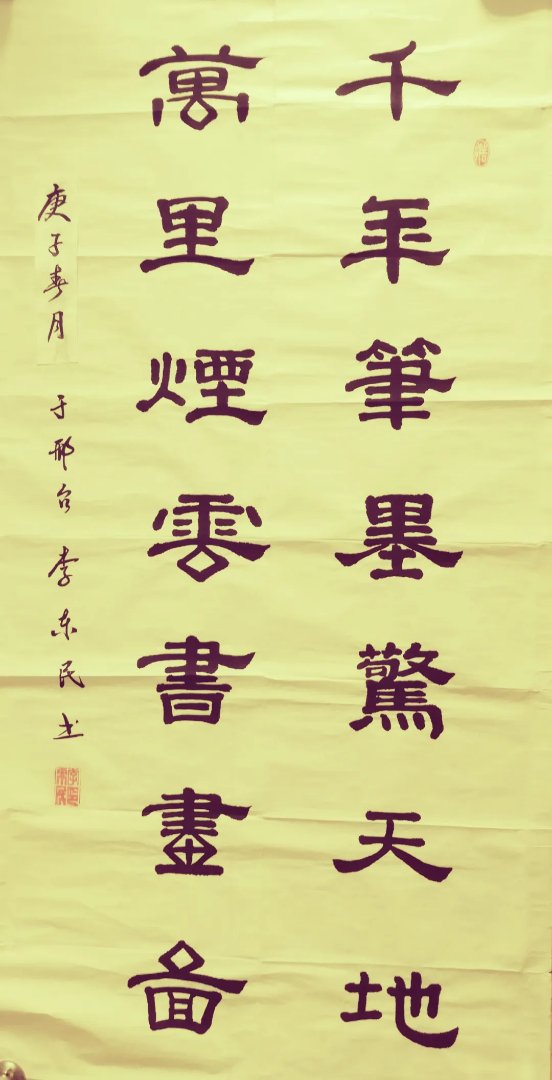 千年筆墨驚天地
萬里煙雲書畫啚
庚子春月 于邢台 李东民书